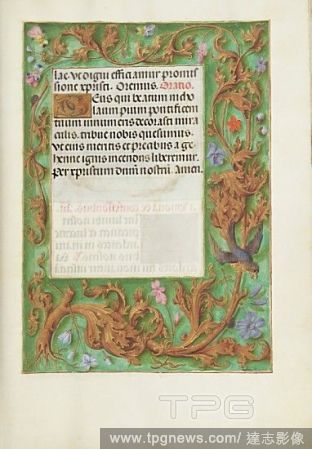 lae: ut digni efficiamur promis
sione xpristi. Oremus. Oratio.
Deus qui beatum nico
laum pium pontificem
tuum innumeris decorasti mira
culis. tribue nobis quesumus.
ut eius meritis et precibus a ge
henne ignis incendiis liberemur.
Per xpistum dnm nostru. Amen.
TPG
www.tpgnews.com/達志影像